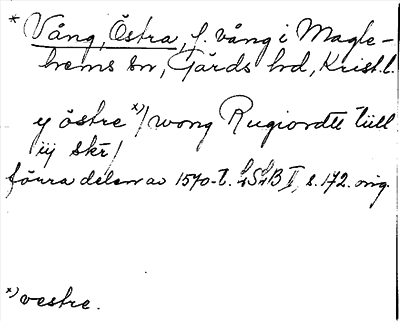 * Vång, Östra, f. vång i Magle-
hems sn, Gärds hd, Krist. l.
y östre x)/wong Rugiordtt tiill
iij skr/
förra delen av 1570-t. LSLB II, s. 172. orig.
x) vestre.